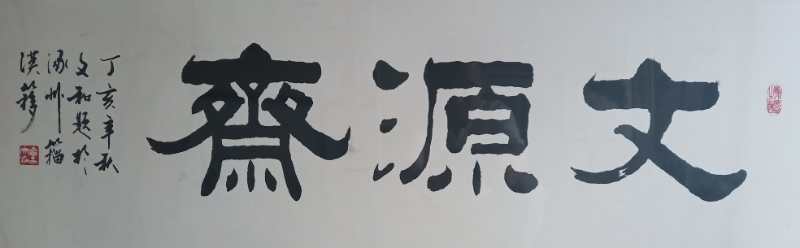 文源齋
丁亥年秋
文和题於
涿州籀
漢